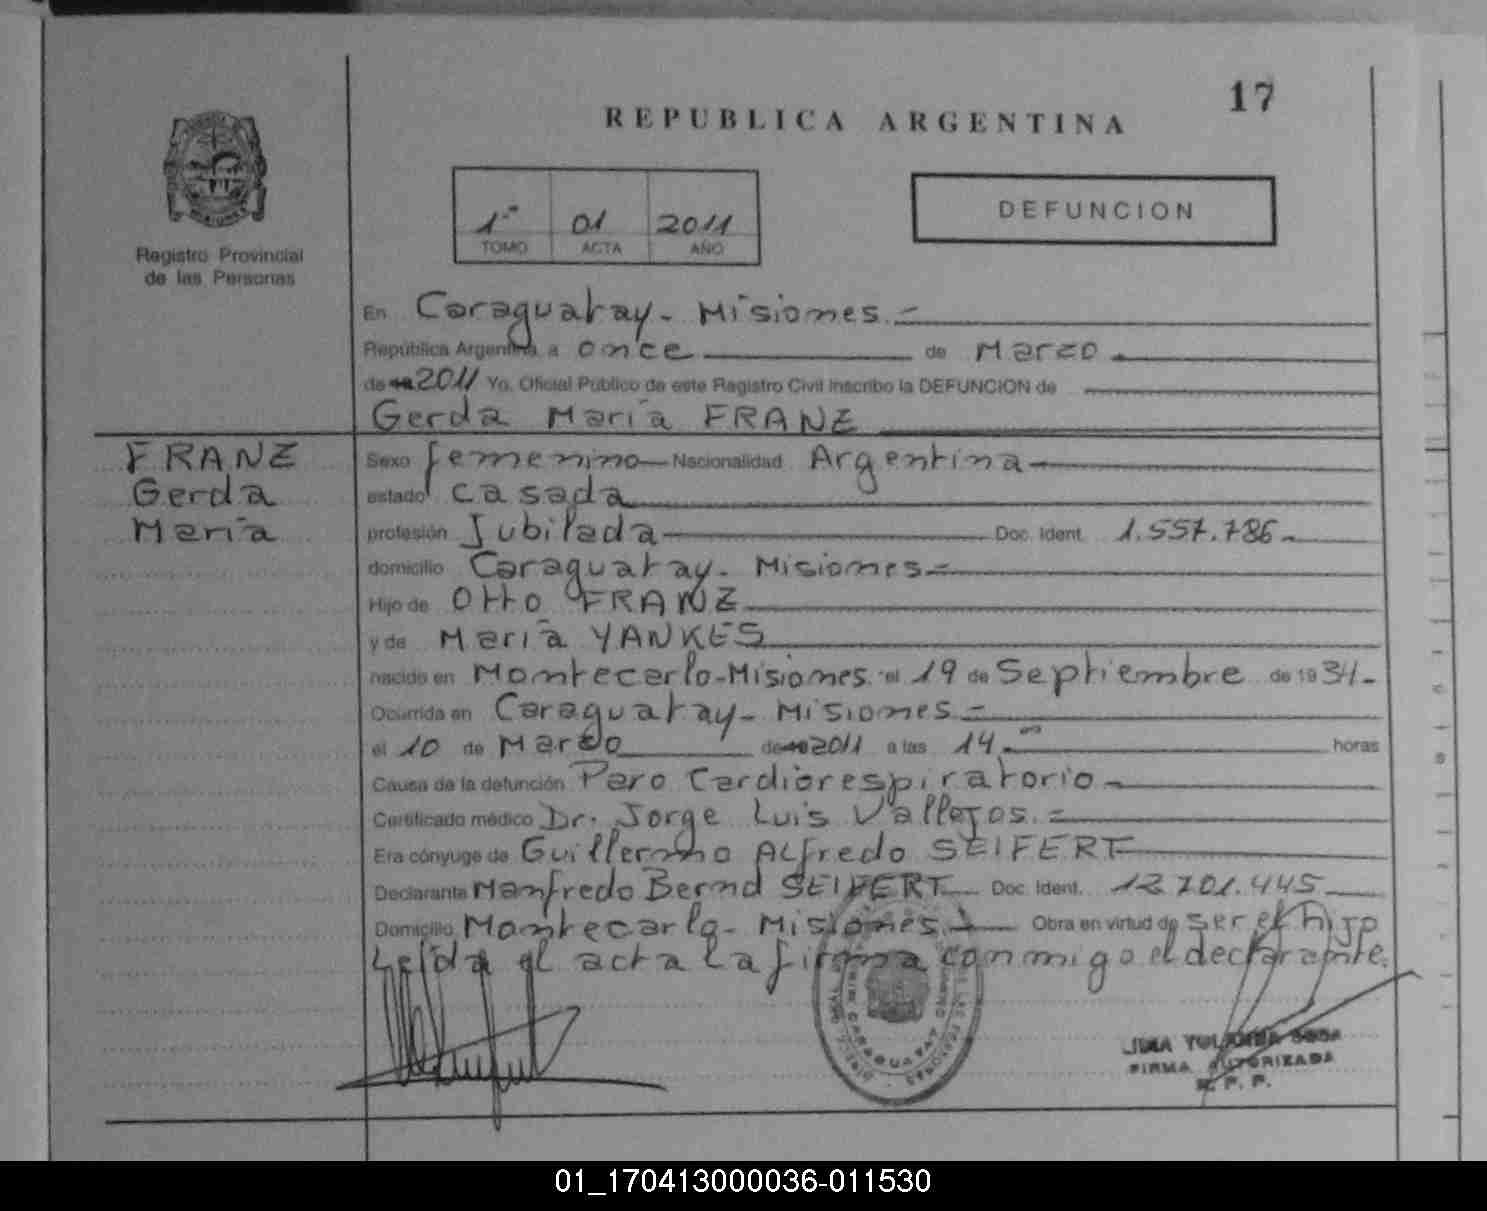 17
REPUBLICA ARGENTINA
1º 01 2011
TOMO ACTA AÑO
DEFUNCION
Registro Provincial
de las Personas
En Caraguatay - Misiones.=
República Argentina a once de Marzo
de 2011 Yo. Oficial Público de este Registro Civil inscribo la DEFUNCION de
Gerda María FRANZ
FRANZ
Gerda
María
Sexo femenino Nacionalidad Argentina
estado casada
profesión Jubilada Doc. Ident. 1.557.786.-
domicilio Caraguatay - Misiones=
Hijo de Otto FRANZ
y de María YANKES
nacido en Montecarlo-Misiones. el 19 de Septiembre de 1934.-
Ocurrida en Caraguatay - Misiones.=
el 10 de Marzo de 2011 a las 14.00 horas
Causa de la defunción Paro Cardiorespiratorio
Certificado médico Dr. Jorge Luis Vallejos.=
Era cónyuge de Guillermo Alfredo SEIFERT
Declarante Manfredo Bernd SEIFERT Doc. Ident. 12.701.445
Domicilio Montecarlo - Misiones. Obra en virtud de ser el hijo
Leída el acta la firma conmigo el declarante.
CARAGUATAY
FIRMA AUTORIZADA
R. P. P.
01_170413000036-011530